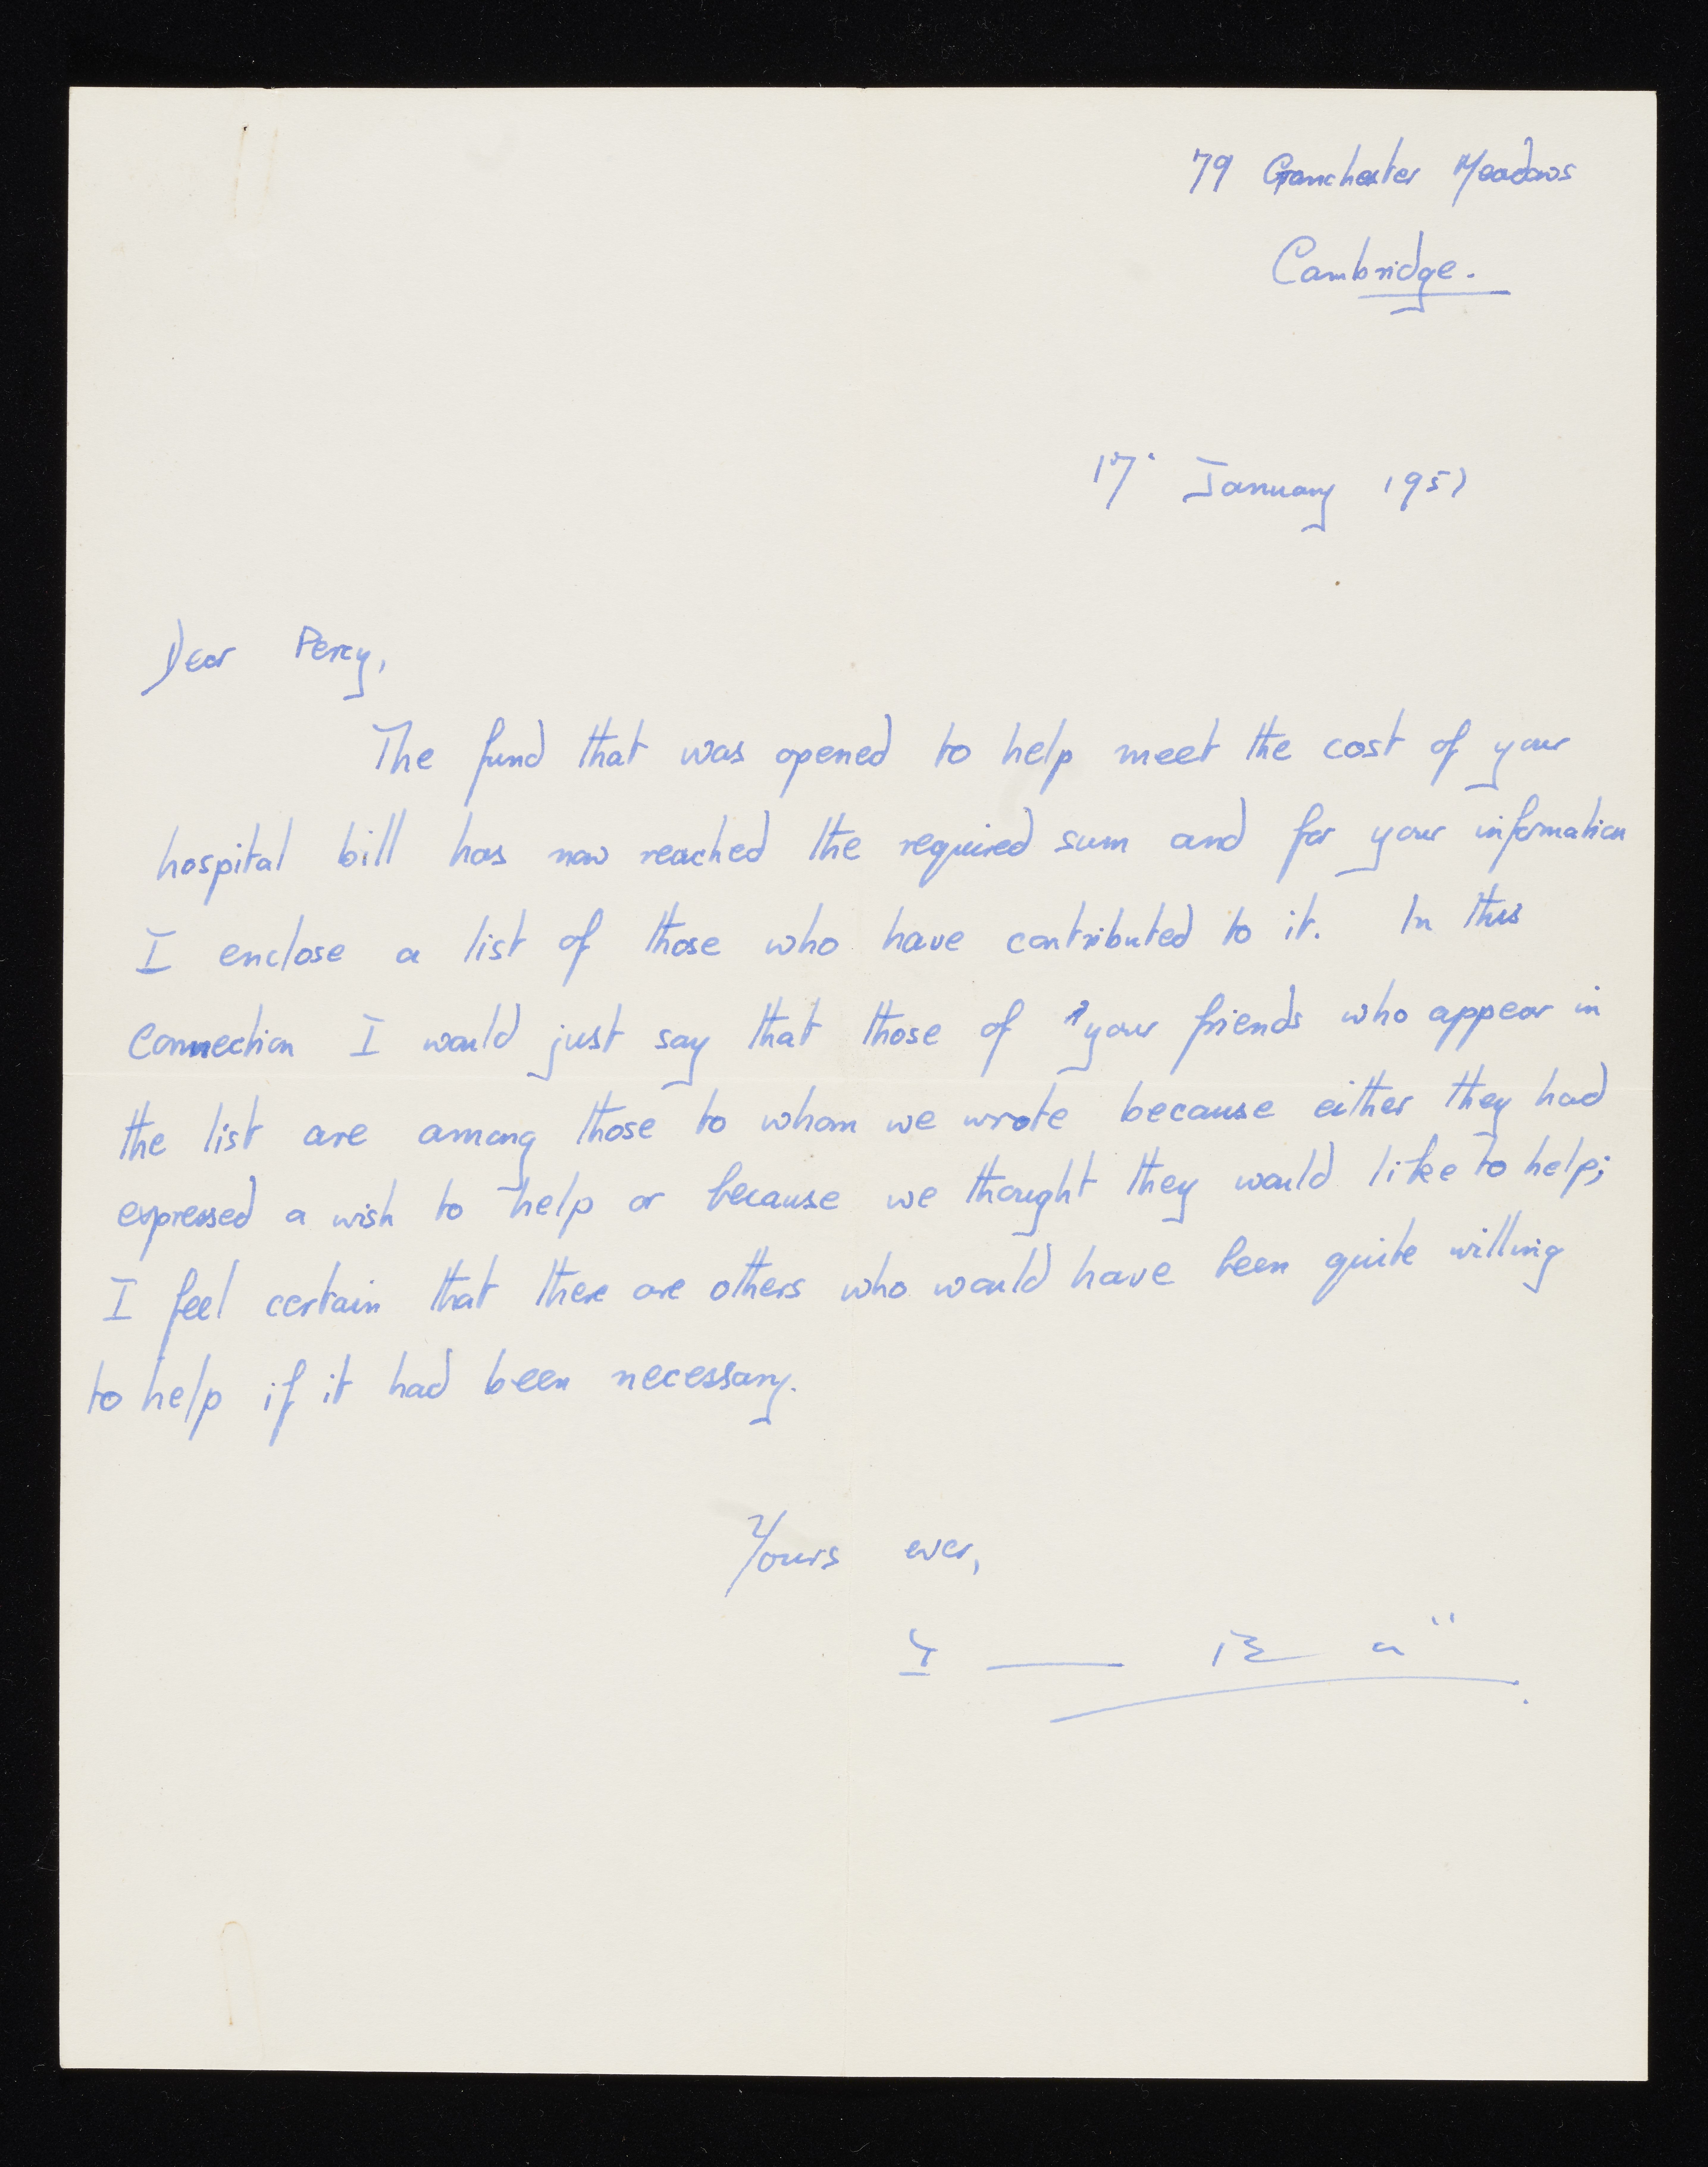 79 Grantchester Meadows
Cambridge.
17. January 195
Dear Percy,
The fund that was opened to help meet the cost of your
hospital bill has now reached the required sum and for your information
I enclose a list of those who have contributed to it. In this
connection I would just say that those of your friends who appear in
the list are among those to whom we wrote because either they had
expressed a wish to help or because we thought they would like to help;
I feel certain that there are others who would have been quite willing
to help if it had been necessary.
Yours ever,